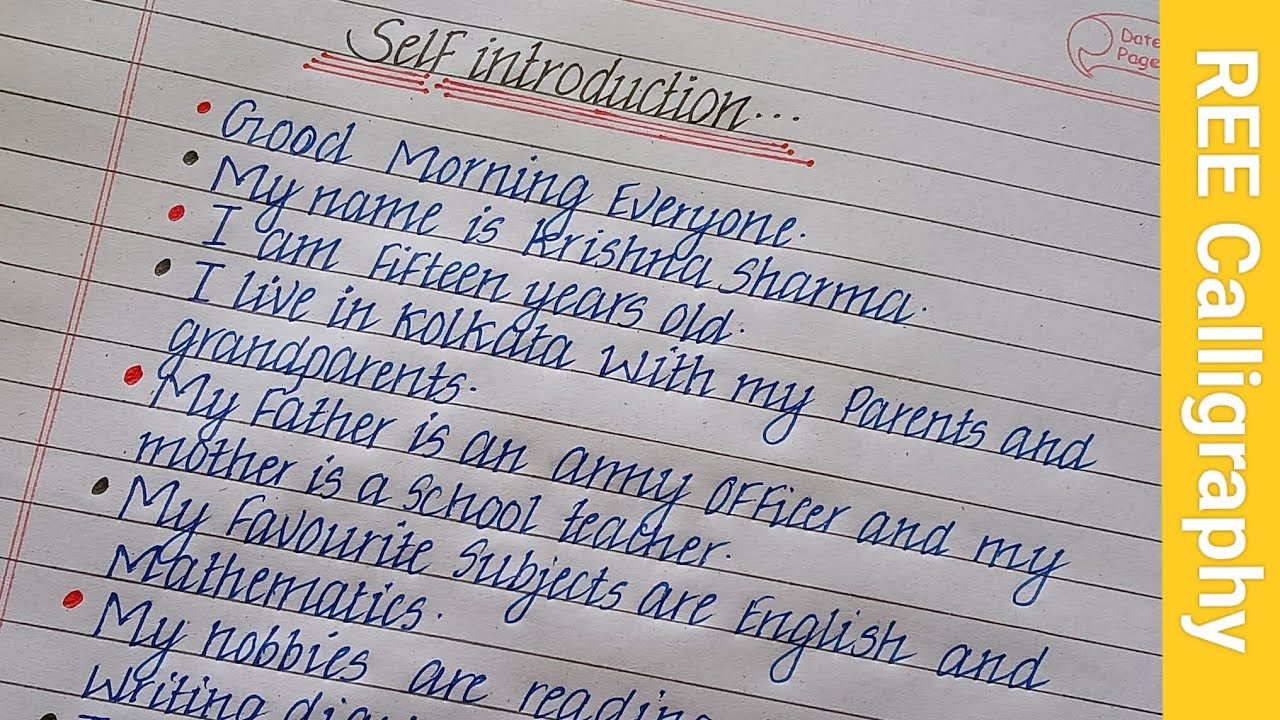 Self introduction...
Date
Page
• Good Morning Everyone.
• My name is Krishna Sharma.
• I am Fifteen years old.
• I live in Kolkata with my Parents and
grandparents.
• My Father is an army Officer and my
mother is a School teacher.
• My Favourite Subjects are English and
Mathematics.
• My hobbies are reading
Writing
REE Calligraphy